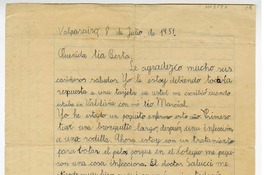 Valparaíso, 8 de Julio de 1951
Querida tía Berta:
Le agradezco mucho sus
cariñosos saludos. Yo le estoy debiendo toda la
respuesta a una tarjeta que usted me escribió cuando
estaba en Valdivia con mi tío Marcial.
Yo he estado un poquito enfermo este año. Primero
tuve una bronquitis larga, después una infección
a una rodilla. Ahora estoy con un tratamiento
para botar el pelo porque en el colegio me pegaron
una cosa infecciosa. El doctor Salucci me